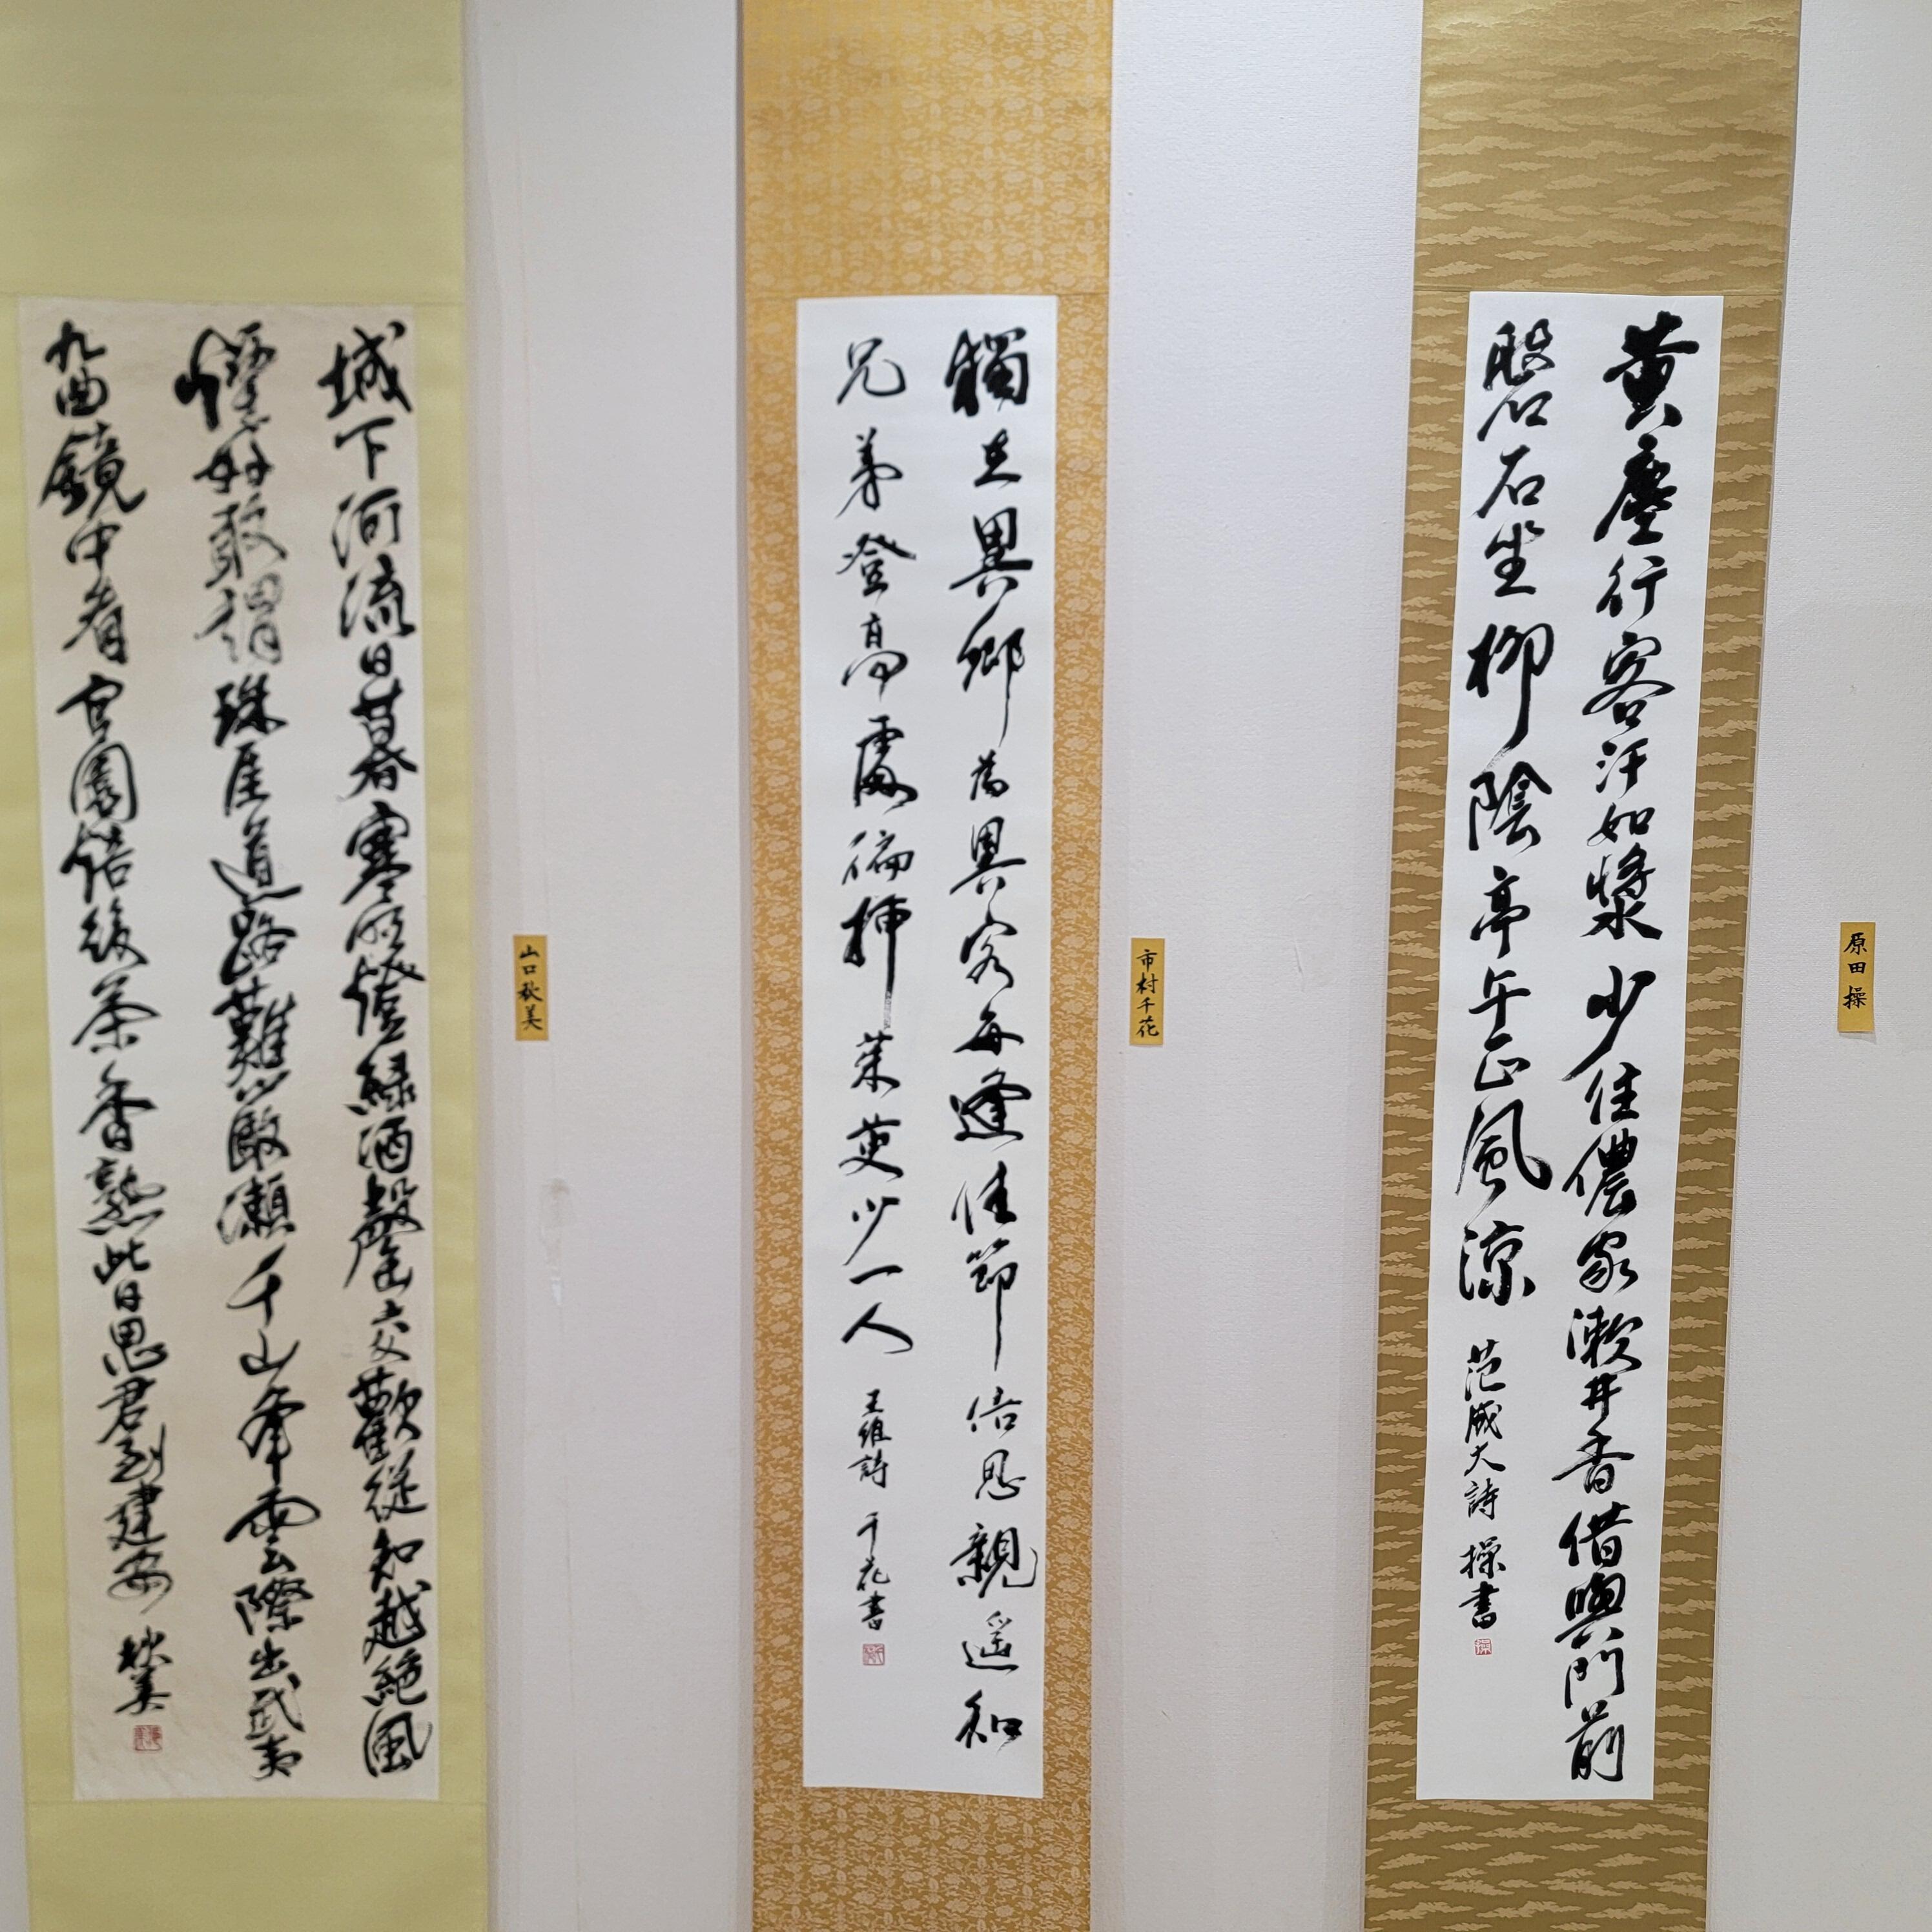 原田操
黄塵行客汗如漿少住儂家漱井香借與門前
磐石坐柳陰亭午正風涼 范成大詩 操書
市村千花
獨在異郷為異客每逢佳節倍思親遥知
兄弟登高處徧挿茱萸少一人 王維詩 千花書
山口秋美
城下河流日暮寒照燈綠酒罄交歡從知越絶風
煙好敢謂珠厓道路難甌瀬千峯雲際出武夷
九曲鏡中看官園焙後茶香熟此日思君到建安 秋美